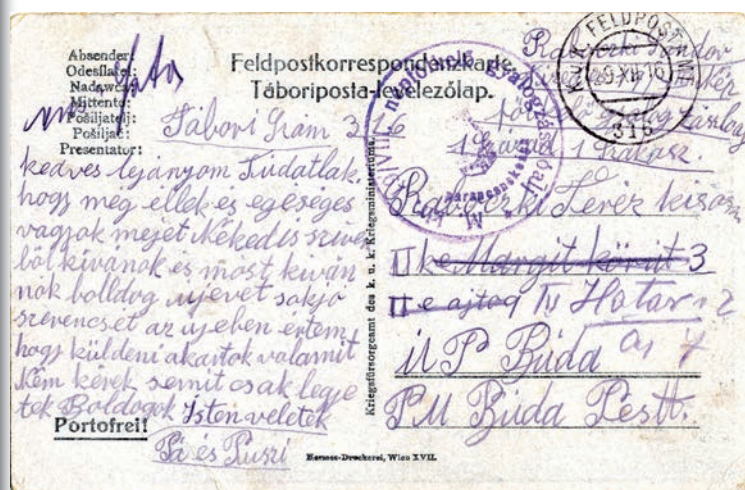 Absender:
Odesílatel:
Nadawca:
Mittente:
Pošiljatelj:
Pošiljač:
Presentator:
Feldpostkorrespondenzkarte.
Tábori posta-levelezőlap.
K.u.K. FELDPOST
9.XII.16
316
népfölkelő gyalogzászlóalj
parancsnokság
Sándor
1 Század 1 Szakasz.
Tábori Szám 316
kedves lejányom Tudatlak
hogy meg éllek es egéseges
vagyok mejet Néked is szive
ből kivánok és most kiván
nok bolldog ujevet sok jo
szerencsét az ujeben értem
hogy küldeni akartok valamit
Nem kérek semit csak legye
tek Boldogok Isten veletek
Pá és Puszi
Portofrei!
Kriegsfürsorgeamt des k. u. k. Kriegsministeriums.
Teréz kisasz
II ke Margit körut 3
II e ajtog IV Hatar u 2
Buda
Buda Pestt.
Hermes-Druckerei, Wien XVII.